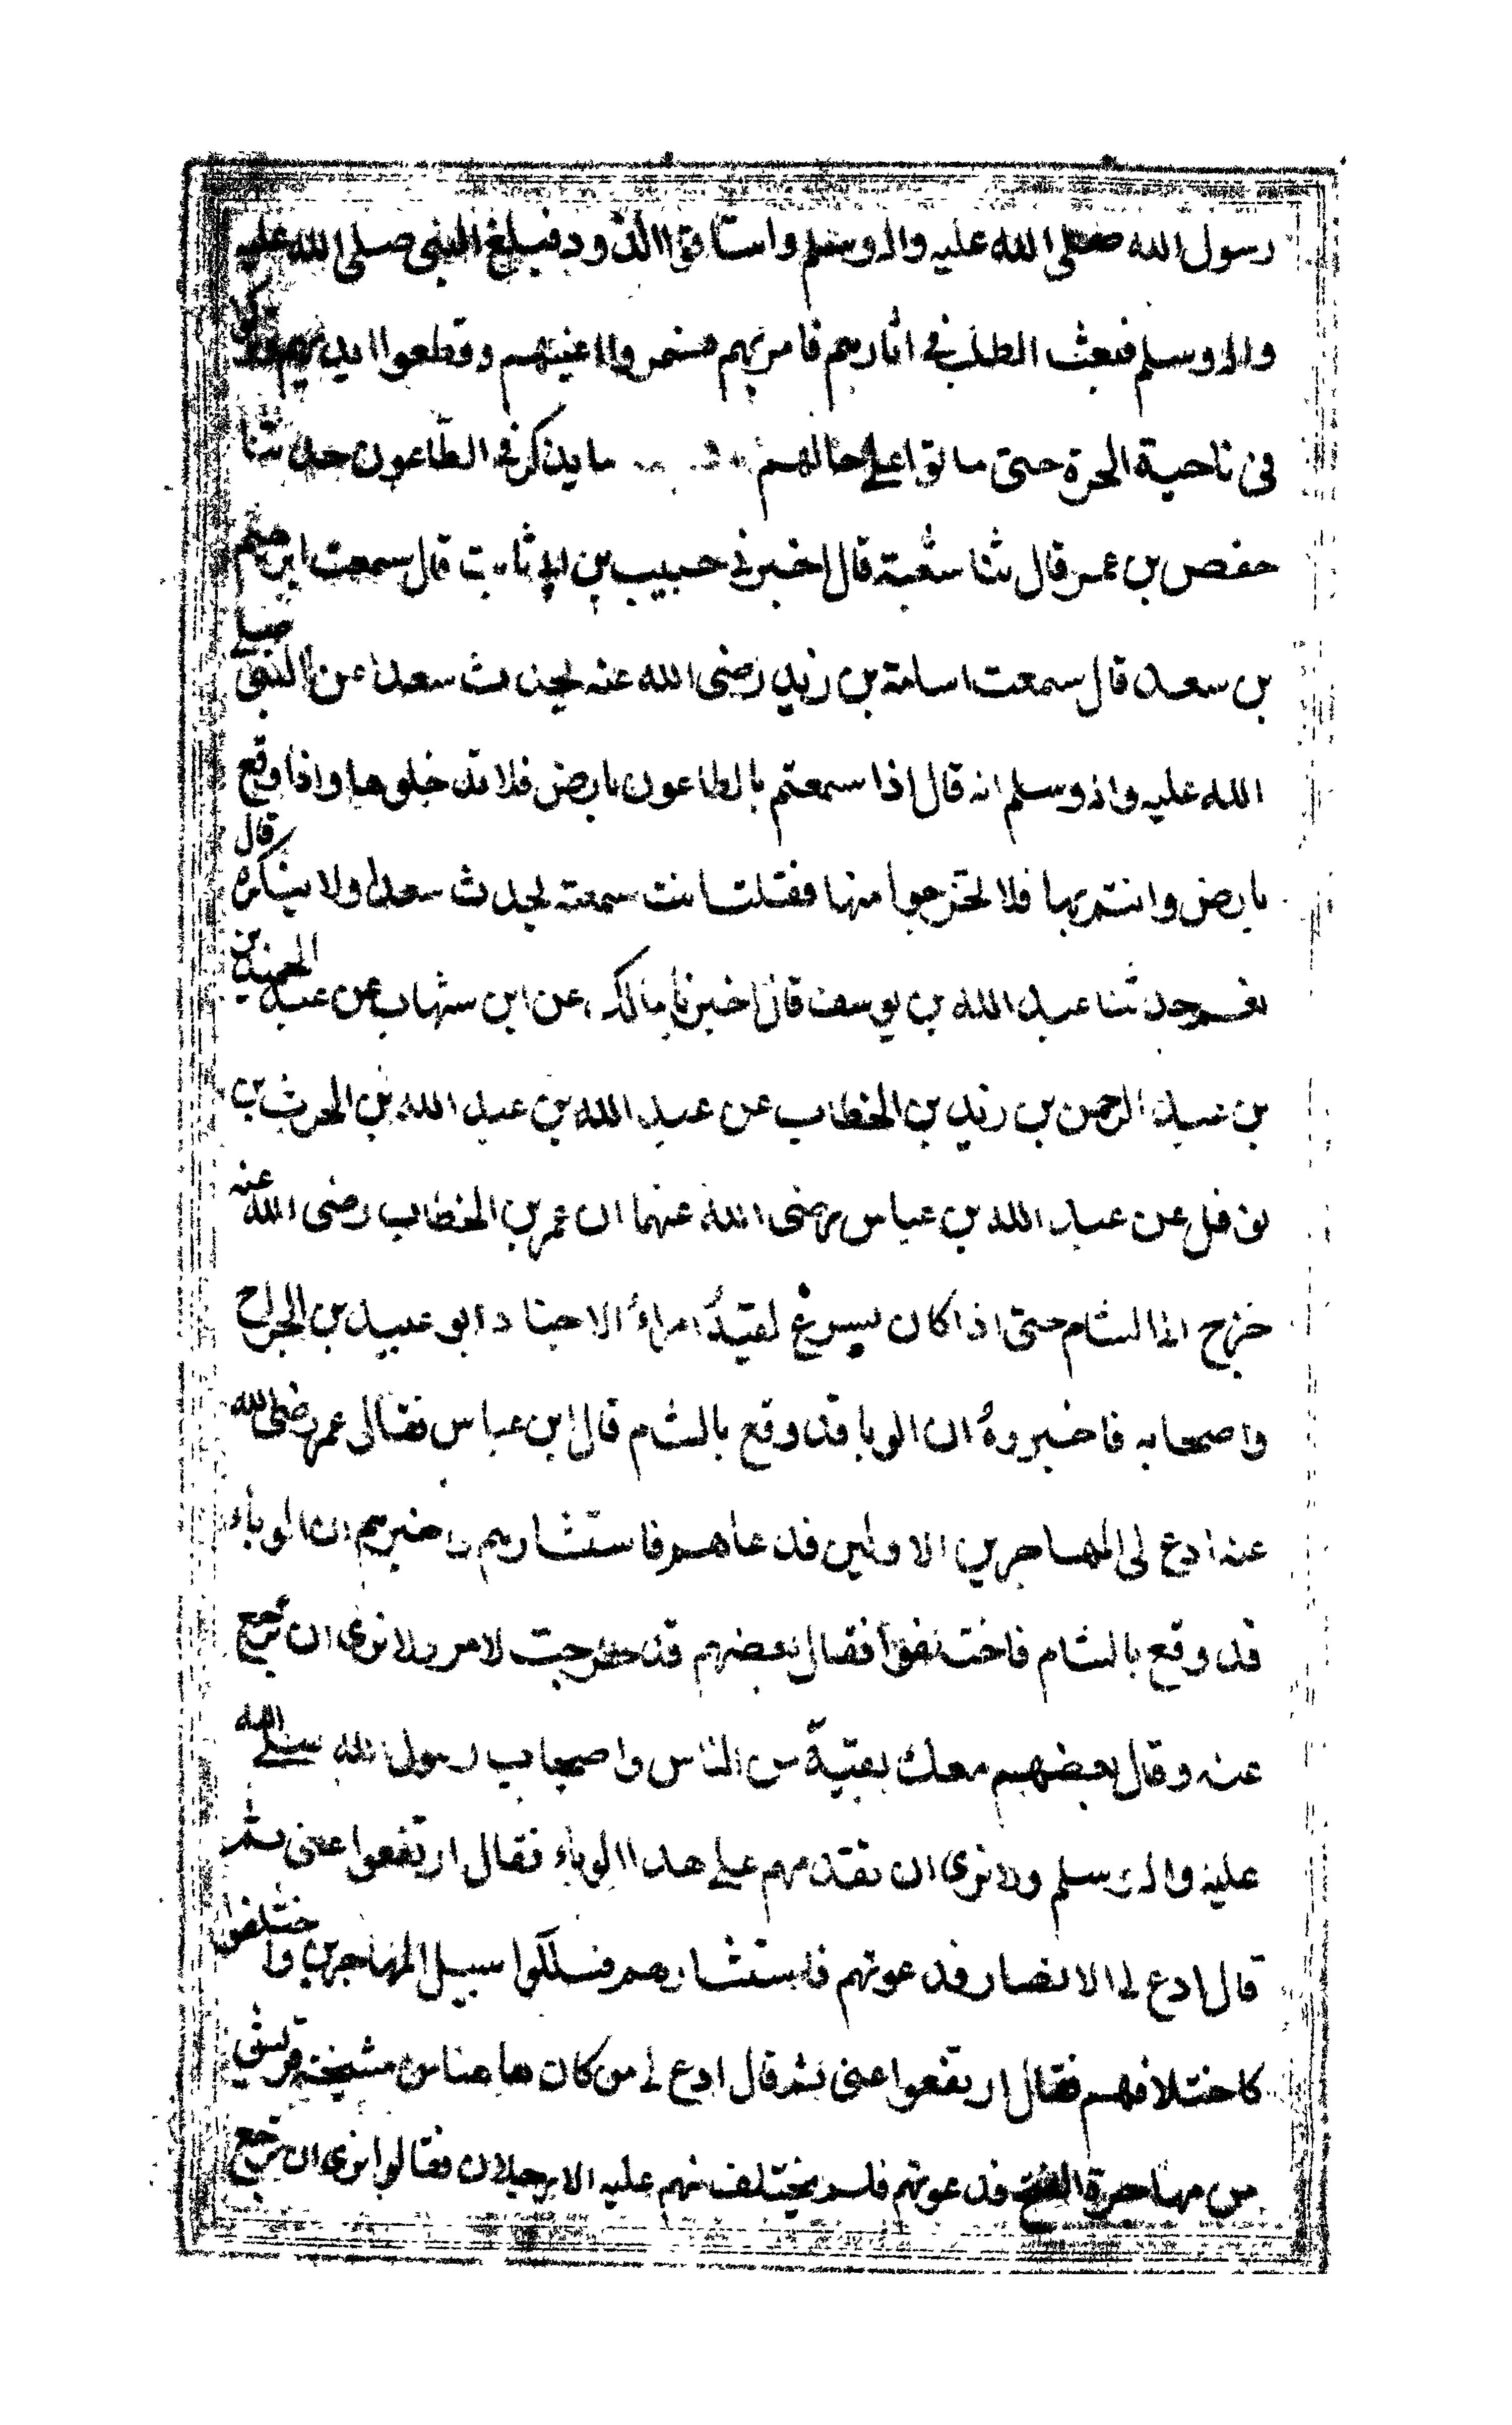 رسول الله صلى الله عليه واله وسلم واستاقوا الذود فبلغ النبى صلى الله عليه
واله وسلم فبعث الطلب فى اثارهم فامر بهم فسمروا اعينهم وقطعوا ايديهم وتركوا
فى ناحية الحرة حتى ماتوا على حالهم ما يذكر فى الطاعون حدثنا
حفص بن عمر قال ثنا شعبة قال اخبرنى حبيب بن ابى ثابت قال سمعت ابرهيم
بن سعد قال سمعت اسامة بن زيد رضى الله عنه يحدث سعدا عن النبى صلى
الله عليه واله وسلم انه قال اذا سمعتم بالطاعون بارض فلا تدخلوها واذا وقع
بارض وانتم بها فلا تخرجوا منها فقلت انت سمعته يحدث سعدا ولا ينكره قال
نعم حدثنا عبد الله بن يوسف قال اخبرنا مالك عن ابن شهاب عن عبد الحميد بن
بن عبد الرحمن بن زيد بن الخطاب عن عبد الله بن عبد الله بن الحرث بن
نوفل عن عبد الله بن عباس رضى الله عنهما ان عمر بن الخطاب رضى الله عنه
خرج الى الشام حتى اذا كان بسرغ لقيه امراء الاجناد ابو عبيد بن الجراح
واصحابه فاخبروه ان الوبا قد وقع بالشام قال ابن عباس فقال عمر رضى الله
عنه ادع لى المهاجرين الاولين فدعاهم فاستشارهم واخبرهم ان الوباء
قد وقع بالشام فاختلفوا فقال بعضهم قد خرجت لامر ولا نرى ان ترجع
عنه وقال بعضهم معك بقية من الناس واصحاب رسول الله صلى الله
عليه واله وسلم ولا نرى ان تقدمهم على هذا الوباء فقال ارتفعوا عنى ثم
قال ادع لى الانصار فدعوتهم فاستشارهم فسلكوا سبيل المهاجرين واختلفوا
كاختلافهم فقال ارتفعوا عنى ثم قال ادع لى من كان هاهنا من مشيخة قريش
من مهاجرة الفتح فدعوتهم فلم يختلف منهم عليه الا رجلان فقالوا نرى ان ترجع